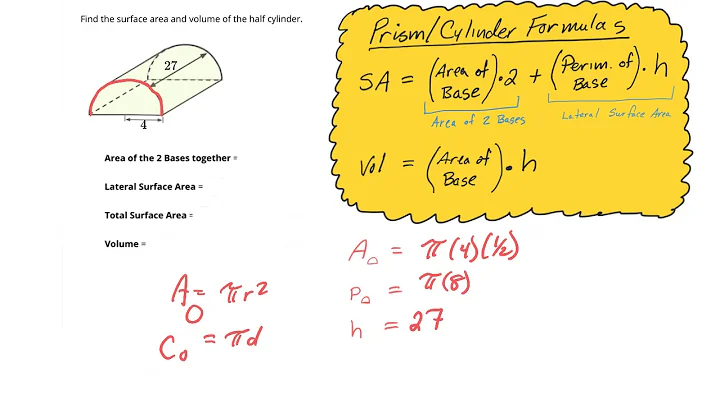 Find the surface area and volume of the half cylinder.
27
4
Area of the 2 Bases together =
Lateral Surface Area =
Total Surface Area =
Volume =
Prism/Cylinder Formulas
SA = (Area of Base) · 2 + (Perim. of Base) · h
Area of 2 Bases
Lateral Surface Area
Vol = (Area of Base) · h
A⌓ = π(4)(½)
P⌓ = π(8)
h = 27
A○ = πr2
C○ = πd